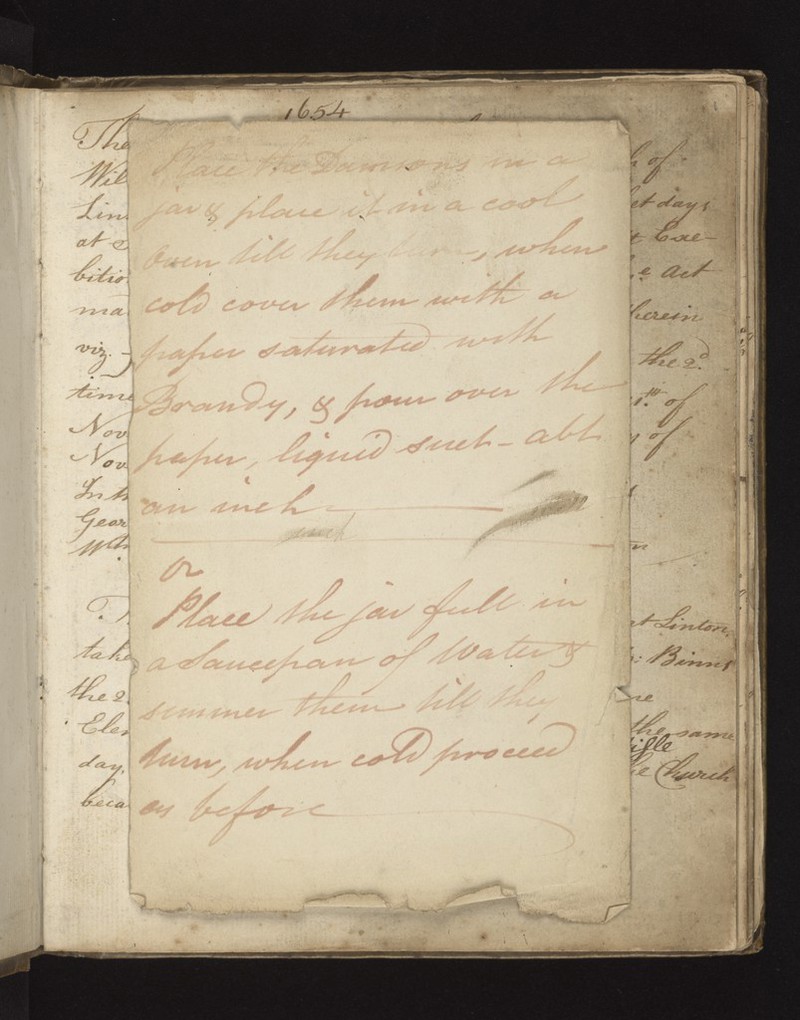 1654
Place the Damsons in a
jar & place it in a cool
Oven till they turn, when
cold cover them with a
paper saturated with
Brandy, & pour over the
paper, liquid suet - abt
an inch
suet
or
Place the jar full in
a Saucepan of Water &
simmer them till they
turn, when cold proceed
as before
The
Wil
Lin
at
bitio
ma
viz.
time
Nov
Nov
In th
Geor
Wth
take
the 2
Elen
day.
beca
of
et days
Exe-
Act
herein
the 2d.
of
of
at Linton,
Binns
the same
he Church